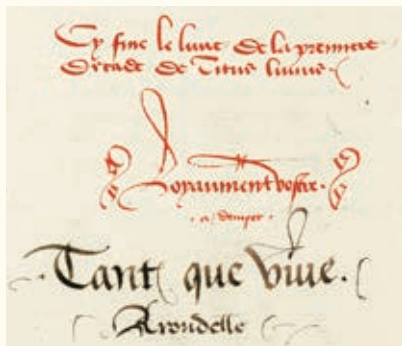 Cy fine le liure de la premiere
decade de Titus liuius.
Loyaument vostre.
Tant que viue.
Arondelle